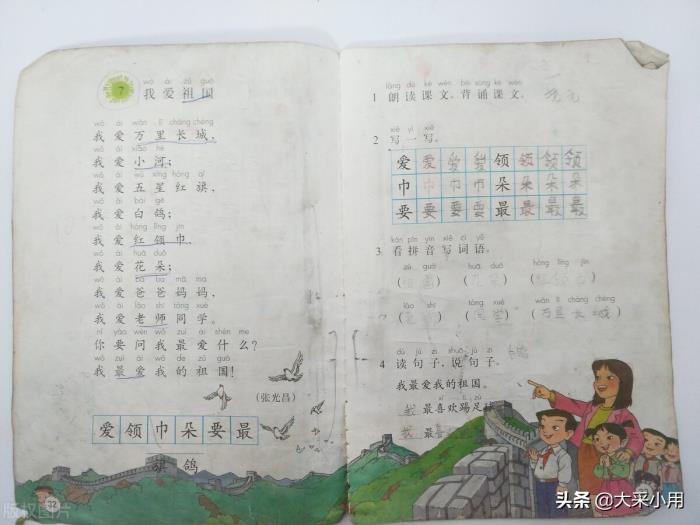 wǒ ài zǔ guó
7 我爱祖国
wǒ ài wàn lǐ cháng chéng
我爱万里长城，
wǒ ài xiǎo hé
我爱小河；
wǒ ài wǔ xīng hóng qí
我爱五星红旗，
wǒ ài bái gē
我爱白鸽；
wǒ ài hóng lǐng jīn
我爱红领巾，
wǒ ài huā duǒ
我爱花朵；
wǒ ài bà ba mā ma
我爱爸爸妈妈，
wǒ ài lǎo shī tóng xué
我爱老师同学。
nǐ yào wèn wǒ zuì ài shén me
你要问我最爱什么？
wǒ zuì ài wǒ de zǔ guó
我最爱我的祖国！
（张光昌）
爱领巾朵要最
旗鸽
32
lǎng dú kè wén bèi sòng kè wén
1 朗读课文。背诵课文。
xiě yì xiě
2 写一写。
爱爱爱爱领领领领
巾巾巾巾朵朵朵朵
要要要要最最最最
kàn pīn yīn xiě cí yǔ
3 看拼音写词语。
zǔ guó huā duǒ hóng lǐng jīn
（祖国）（花朵）（红领巾）
lǎo shī tóng xué wàn lǐ cháng chéng
（老师）（同学）（万里长城）
dú jù zi shuō jù zi
4 读句子，说句子。
我最爱我的祖国。
我最喜欢踢足球
我最喜
版权图片
头条 @大采小用